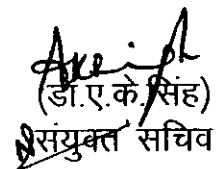 (डा.ए.के.सिंह)
संयुक्त सचिव